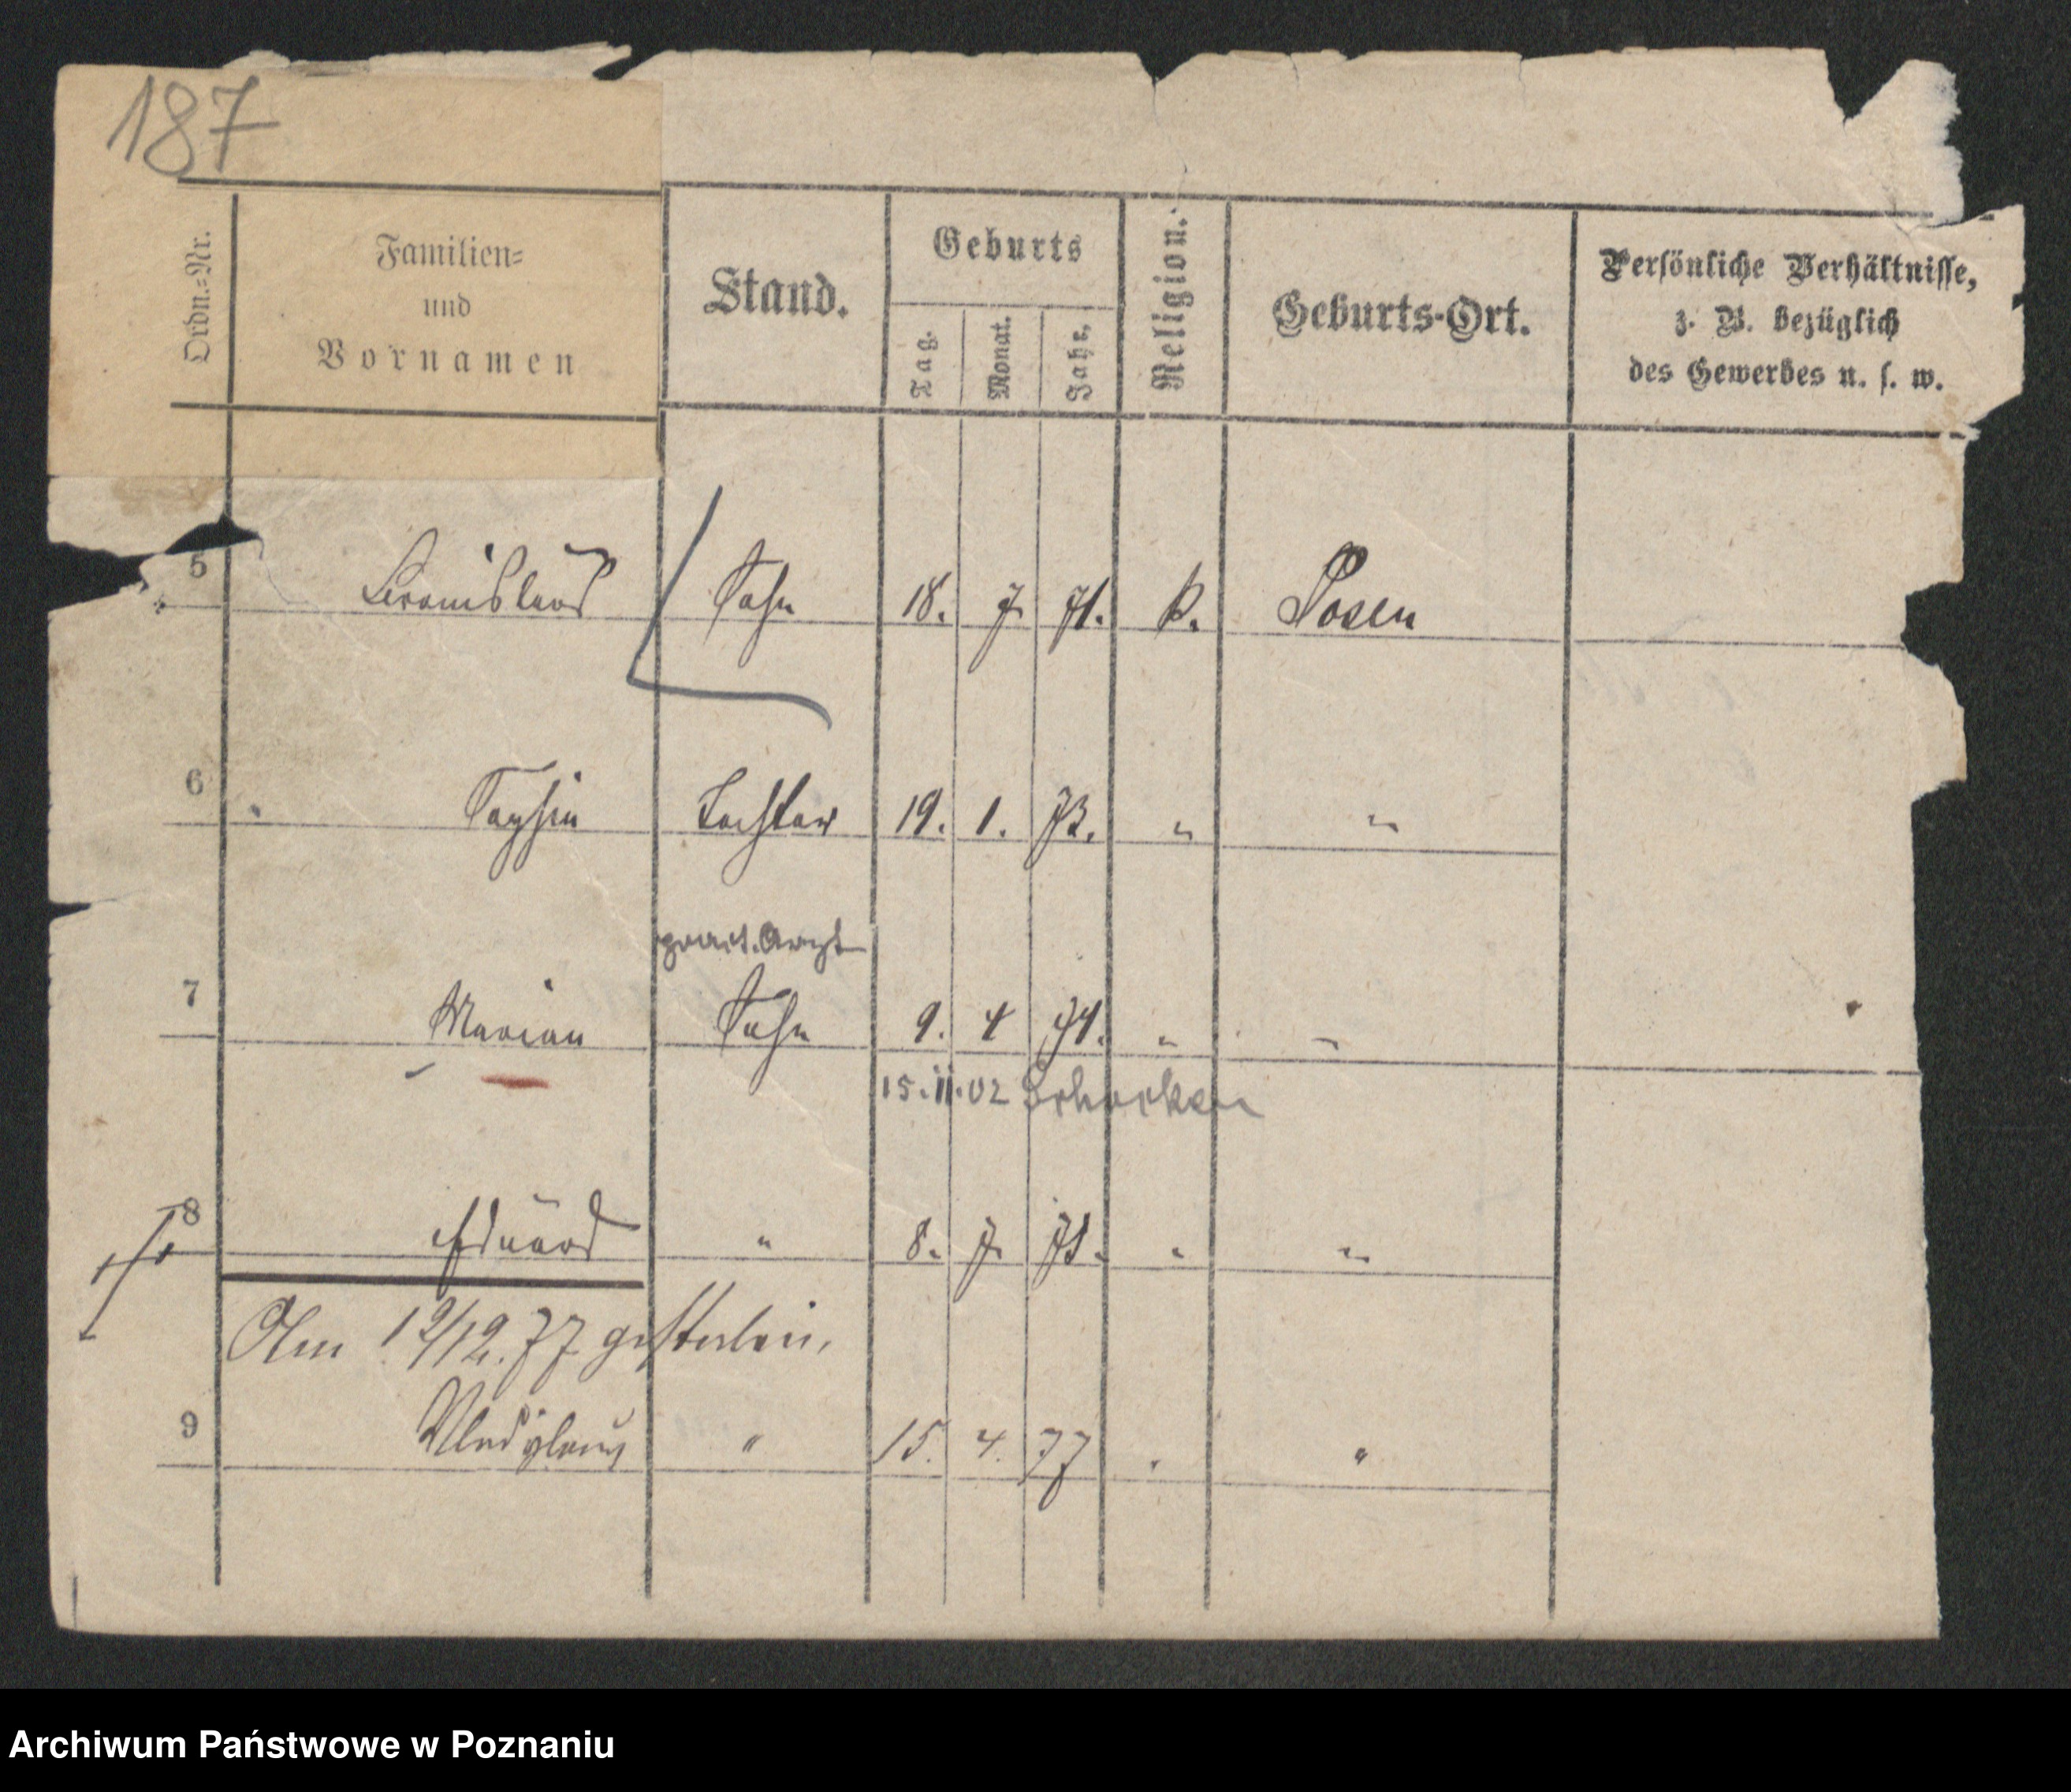 187
Ordn.-Nr.
Familien-
und
Vornamen
Stand.
Geburts
Tag.
Monat.
Jahr.
Religion.
Geburts-Ort.
Persönliche Verhältnisse,
z. B. bezüglich
des Gewerbes u. s. w.
5 Bronislaus Sohn 18. 7 71. k. Posen
6 Sophia Tochter 19. 1. 73. " "
pract. Arzt
7 Marian Sohn 9. 4 74. " "
15.II.02 Schocken
8 Eduard " 8. 7. 75. " "
Am 19/12. 77 gestorben.
9 Wladislaus " 15. 4. 77 " "
Archiwum Państwowe w Poznaniu